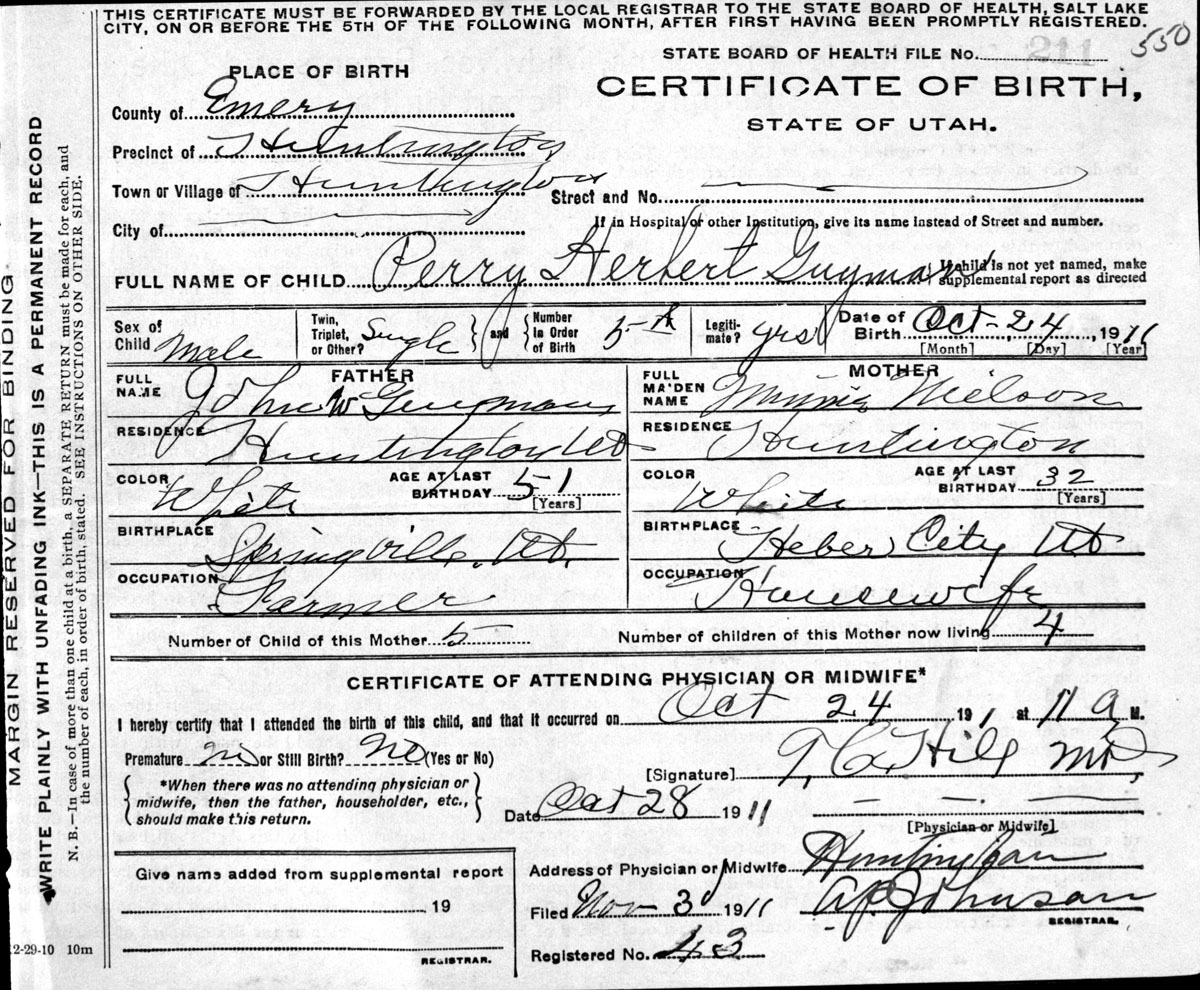 THIS CERTIFICATE MUST BE FORWARDED BY THE LOCAL REGISTRAR TO THE STATE BOARD OF HEALTH, SALT LAKE
CITY, ON OR BEFORE THE 5TH OF THE FOLLOWING MONTH, AFTER FIRST HAVING BEEN PROMPTLY REGISTERED.
550
STATE BOARD OF HEALTH FILE No.
211
PLACE OF BIRTH
CERTIFICATE OF BIRTH,
STATE OF UTAH.
County of Emery
Precinct of Huntington
Town or Village of Huntington
Street and No.
City of
If in Hospital or other Institution, give its name instead of Street and number.
FULL NAME OF CHILD Perry Herbert Guymon
If child is not yet named, make supplemental report as directed
Sex of Child Male
Twin, Triplet, or Other? Single and Number in Order of Birth 5th
Legitimate? yes
Date of Birth Oct-24 1911
[Month] [Day] [Year]
FATHER
FULL NAME John W Guymon
RESIDENCE Huntington Ut
COLOR White
AGE AT LAST BIRTHDAY 51
[Years]
BIRTHPLACE Springville, Ut.
OCCUPATION Farmer
MOTHER
FULL MAIDEN NAME Minnie Nielson
RESIDENCE Huntington
COLOR White
AGE AT LAST BIRTHDAY 32
[Years]
BIRTHPLACE Heber City Ut
OCCUPATION Housewife
Number of Child of this Mother 5
Number of children of this Mother now living 4
CERTIFICATE OF ATTENDING PHYSICIAN OR MIDWIFE*
I hereby certify that I attended the birth of this child, and that it occurred on Oct 24 191 1 at 11 a M.
Premature No or Still Birth? No (Yes or No)
*When there was no attending physician or
midwife, then the father, householder, etc.,
should make this return.
[Signature] T. C. Hill MD
Date Oct 28 1911
[Physician or Midwife]
Address of Physician or Midwife Huntington
Give name added from supplemental report
19
REGISTRAR.
Filed Nov-3 1911
A P Johnson
REGISTRAR.
Registered No. 43
MARGIN RESERVED FOR BINDING.
WRITE PLAINLY WITH UNFADING INK—THIS IS A PERMANENT RECORD
N. B.—In case of more than one child at a birth, a SEPARATE RETURN must be made for each, and
the number of each, in order of birth, stated. SEE INSTRUCTIONS ON OTHER SIDE.
2-29-10 10m